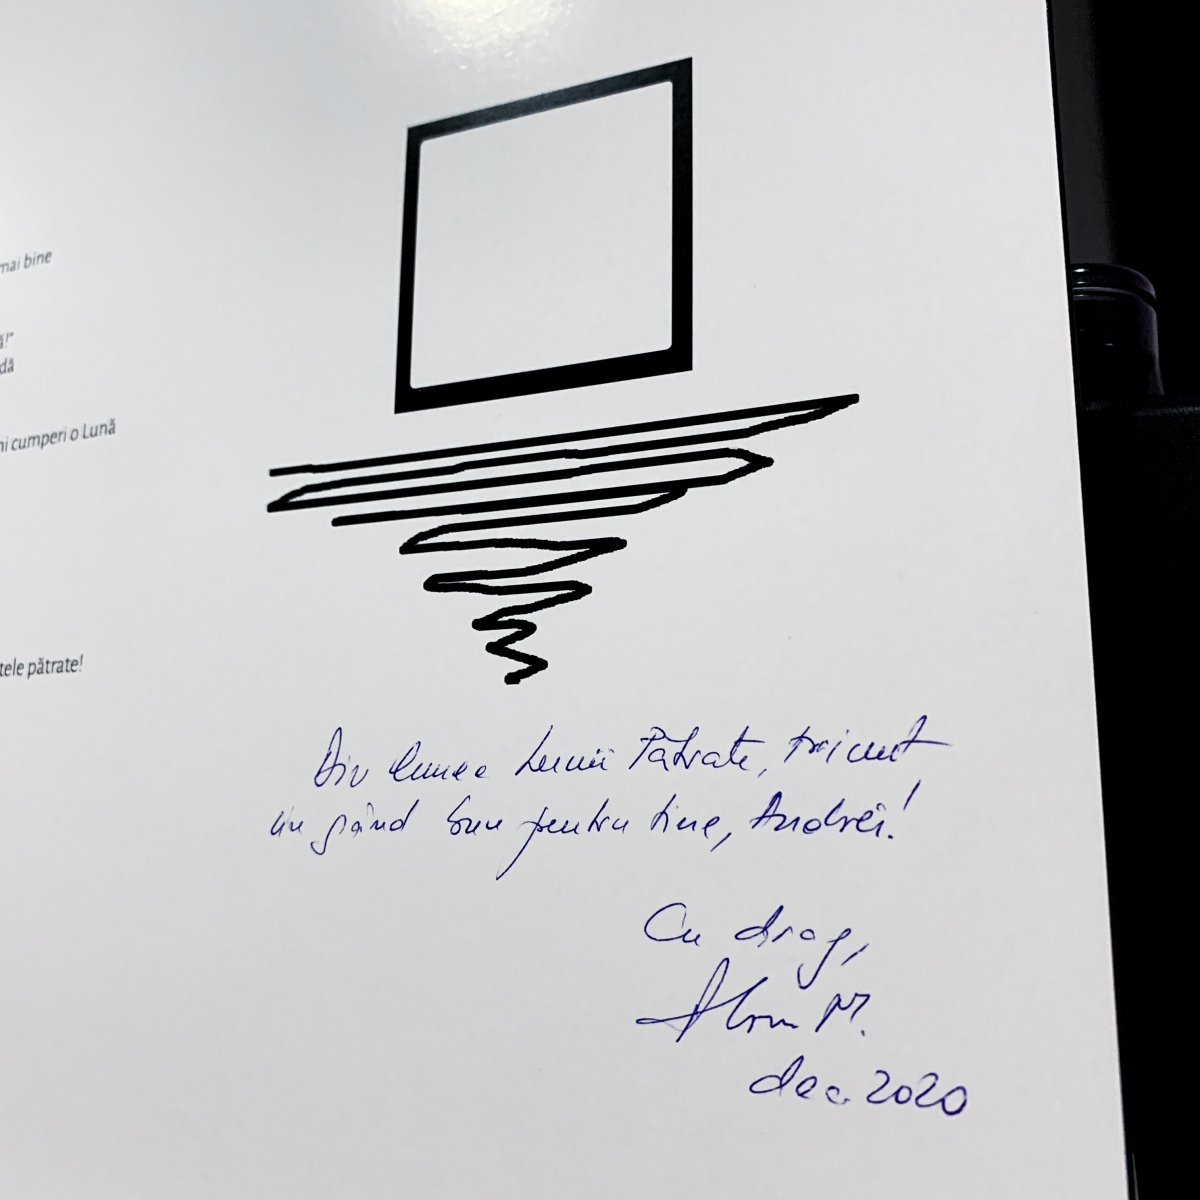 mai bine
ă!"
dă
ni cumperi o Lună
tele pătrate!
Din lumea Lunii Pătrate, trimit
un gând bun pentru tine, Andrei!
Cu drag,
M.
dec. 2020